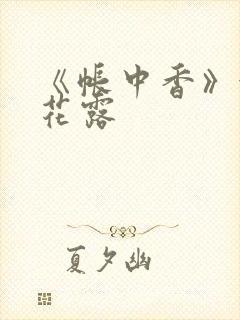 《帐中香》
花露
夏夕幽